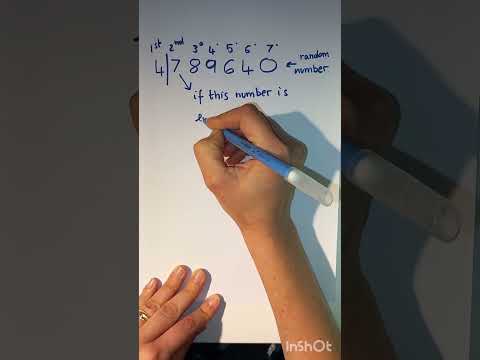 1st 2nd 3° 4· 5· 6· 7·
4|7 8 9 6 4 0 ← random number
if this number is
InShOt